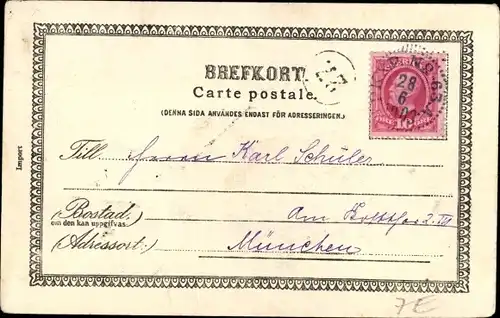 BREFKORT.
Carte postale.
(DENNA SIDA ANVÄNDES ENDAST FÖR ADRESSERINGEN.)
28
6
Till Herrn Karl Schüler
(Bostad, om den kan uppgifvas.) Am 2. III
(Adressort:) München
Import
7E